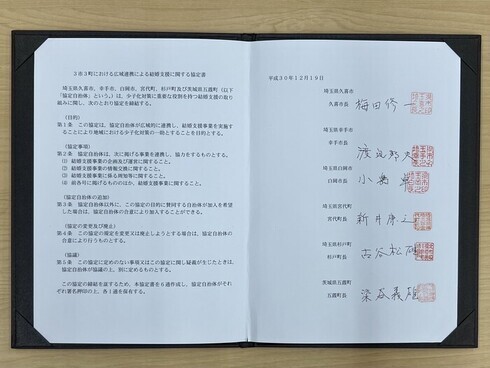 3市3町における広域連携による結婚支援に関する協定書
埼玉県久喜市、幸手市、白岡市、宮代町、杉戸町及び茨城県五霞町（以下
「協定自治体」という。）は、少子化対策に重要な役割を持つ結婚支援の取り
組みに関し、次のとおり協定を締結する。
（目的）
第1条　この協定は、協定自治体が広域的に連携し、結婚支援事業を実施す
ることにより地域における少子化対策の一助とすることを目的とする。
（協定事項）
第2条　協定自治体は、次に掲げる事業を連携し、協力をするものとする。
(1)　結婚支援事業の企画及び運営に関すること。
(2)　結婚支援事業の情報交換に関すること。
(3)　結婚支援事業に係る周知等に関すること。
(4)　前各号に掲げるもののほか、結婚支援事業に関すること。
（協定自治体の追加）
第3条　協定自治体以外に、この協定の目的に賛同する自治体が加入を希望
した場合は、協定自治体の合意により加入することができる。
（協定の変更及び廃止）
第4条　この協定の規定を変更又は廃止しようとする場合は、協定自治体の
合意により行うものとする。
（協議）
第5条　この協定に定めのない事項又はこの協定に関し疑義が生じたときは、
協定自治体が協議の上、別に定めるものとする。
この協定の締結を証するため、本協定書を6通作成し、協定自治体がそれ
ぞれ署名押印の上、各1通を保有する。
平成30年12月19日
埼玉県久喜市
久喜市長　梅田修一
埼玉県幸手市
幸手市長　渡辺邦夫
埼玉県白岡市
白岡市長　小島卓
埼玉県宮代町
宮代町長　新井康之
埼玉県杉戸町
杉戸町長　古谷松雄
茨城県五霞町
五霞町長　染谷義雄